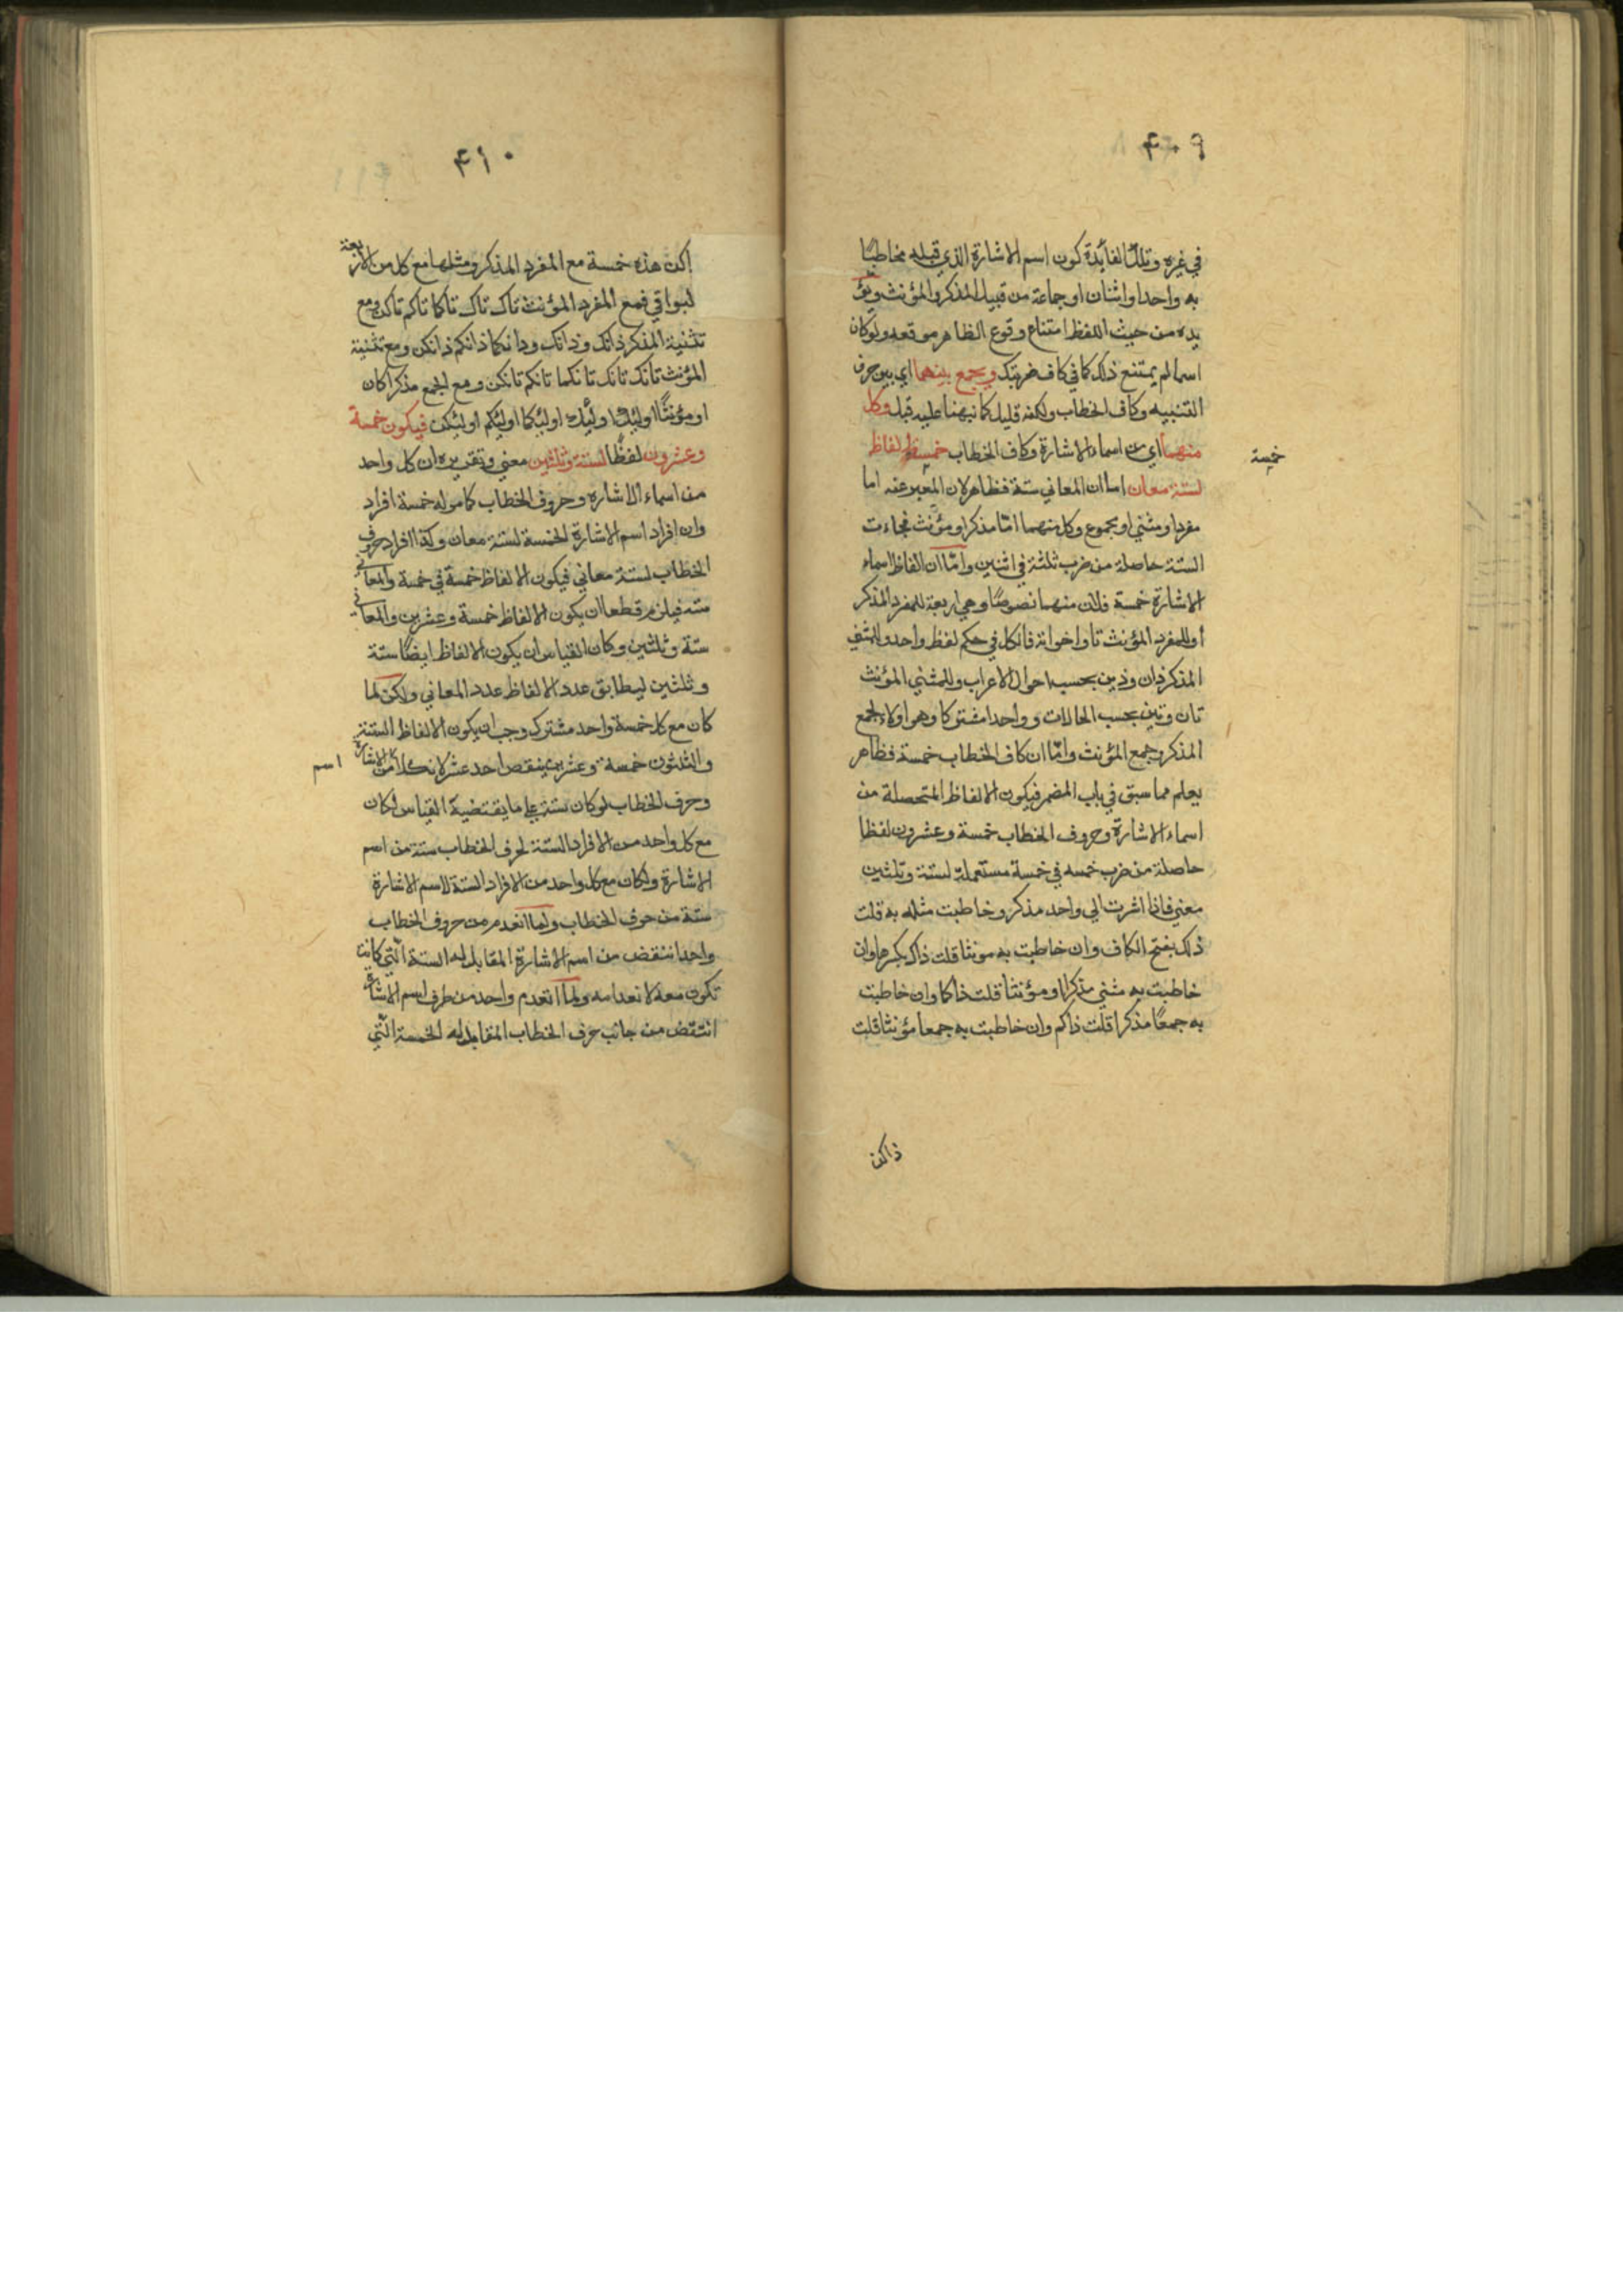 ۴۰۹
في غيره وتلك الفائدة كون اسم الاشارة الذي قبله مخاطبًا
به واحدا واثنان او جماعة من قبيل المذكر والمؤنث ويؤ
يده من حيث اللفظ امتناع وقوع الظاهر موقعه ولو كان
اسما لم يمتنع ذلك كما في كاف ضربتك ويجمع بينهما اي بين حرف
التنبيه وكاف الخطاب ولكنه قليل كما نبهنا عليه قبل وكل
منهما اي من اسماء الاشارة وكاف الخطاب خمسة الفاظ
خمسة
لستة معان اما ان المعاني ستة فظاهر لان المعبر عنه اما
مفرد او مثني او مجموع وكل منهما امّا مذكر او مؤنث فجاءت
الستة حاصلة من ضرب ثلثة في اثنين وامّا ان الفاظ اسماء
الاشارة خمسة فلان منهما نصوصًا وهي اربعة للمفرد المذكر
أو للمفرد المؤنث تا واخواته فالكل في حكم لفظ واحد وللمثنى
المذكر ذان وذين بحسب احوال الاعراب وللمثني المؤنث
تان وتين بحسب الحالات وواحدا مشتركا وهو اولاء لجمع
المذكر وجمع المؤنث وامّا ان كاف الخطاب خمسة فظاهر
يعلم مما سبق في باب المضمر فيكون الالفاظ المتحصلة من
اسماء الاشارة وحروف الخطاب خمسة وعشرون لفظا
حاصلة من ضرب خمسه في خمسة مستعملة لستة وثلثين
معني فاذا اشرت الي واحد مذكر وخاطبت مثله به قلت
ذلك بفتح الكاف وان خاطبت به مونثا قلت ذاك بكسرها وان
خاطبت به مثني مذكرا او مؤنثا قلت ذاكما وان خاطبت
به جمعًا مذكرا قلت ذاكم وان خاطبت به جمعا مؤنثا قلت
ذاكن
۴۱۰
اكن هذه خمسة مع المفرد المذكر ومثلها مع كل من الاربعة
لبواقي فمع المفرد المؤنث تاك تاك تاكما تاكم تاكن ومع
تثنية المذكر ذانك وذانك وذانكما ذانكم ذانكن ومع تثنية
المؤنث تانك تانك تانكما تانكم تانكن ومع الجمع مذكرا كان
او مؤنثًا اولئك اولئك اولئكما اولئكم اولئكن فيكون خمسة
وعشرون لفظًا لستة وثلثين معني وتقريره ان كل واحد
من اسماء الاشارة وحروف الخطاب كما مر له خمسة افراد
وان افراد اسم الاشارة الخمسة لستة معان وكذا افراد حروف
الخطاب لستة معاني فيكون الالفاظ خمسة في خمسة والمعاني
سته فيلزم قطعا ان يكون الالفاظ خمسة وعشرين والمعاني
ستّة وثلثين وكان القياس ان يكون الالفاظ ايضًا ستة
وثلثين ليطابق عدد الالفاظ عدد المعاني ولكن لما
كان مع كل خمسة واحد مشترك وجب ان يكون الالفاظ الستة
والثلثون خمسة وعشرين ينقص احد عشر لانّ كلا من الاشارة
اسم
وحرف الخطاب لو كان ستة علي ما يقتضيه القياس لكان
مع كل واحد من الافراد الستة لحرف الخطاب ستة من اسم
الاشارة ولكان مع كل واحد من الافراد الستة لاسم الاشارة
ستة من حرف الخطاب ولما انعدم من حروف الخطاب
واحدا انتقض من اسم الاشارة المقابل له الستة الّتي كانت
تكون معه لانعدامه ولما انعدم واحد من طرف اسم الاشارة
انتقض من جانب حرف الخطاب المقابل له الخمسة الّتي